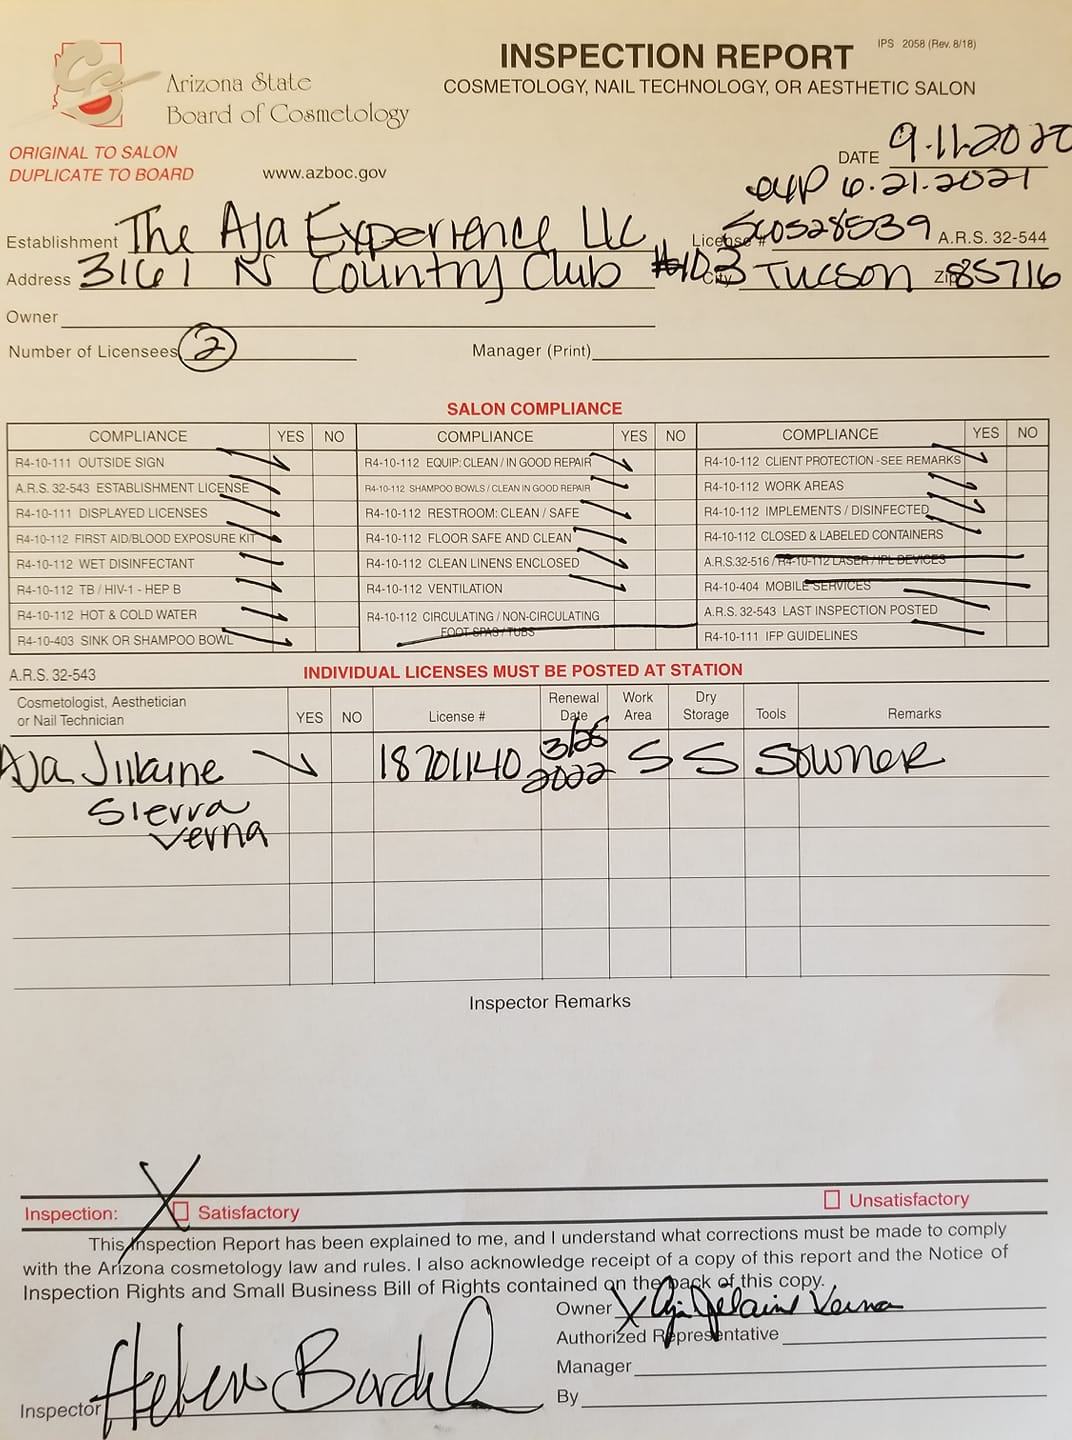 INSPECTION REPORT
IPS 2058 (Rev. 8/18)
COSMETOLOGY, NAIL TECHNOLOGY, OR AESTHETIC SALON
Arizona State
Board of Cosmetology
ORIGINAL TO SALON
DUPLICATE TO BOARD
www.azboc.gov
DATE 9.11.2020
exp 6.21.2021
Establishment The Aja Experience LLC License # A.R.S. 32-544
Address 3161 N Country Club #103 City Tucson Zip 85716
Owner
Number of Licensees 2 Manager (Print)
SALON COMPLIANCE
COMPLIANCE YES NO COMPLIANCE YES NO COMPLIANCE YES NO
R4-10-111 OUTSIDE SIGN R4-10-112 EQUIP: CLEAN / IN GOOD REPAIR R4-10-112 CLIENT PROTECTION -SEE REMARKS
A.R.S. 32-543 ESTABLISHMENT LICENSE R4-10-112 SHAMPOO BOWLS / CLEAN IN GOOD REPAIR R4-10-112 WORK AREAS
R4-10-111 DISPLAYED LICENSES R4-10-112 RESTROOM: CLEAN / SAFE R4-10-112 IMPLEMENTS / DISINFECTED
R4-10-112 FIRST AID/BLOOD EXPOSURE KIT R4-10-112 FLOOR SAFE AND CLEAN R4-10-112 CLOSED & LABELED CONTAINERS
R4-10-112 WET DISINFECTANT R4-10-112 CLEAN LINENS ENCLOSED A.R.S.32-516 / R4-10-112 LASER / IPL DEVICES
R4-10-112 TB / HIV-1 - HEP B R4-10-112 VENTILATION R4-10-404 MOBILE SERVICES
R4-10-112 HOT & COLD WATER R4-10-112 CIRCULATING / NON-CIRCULATING A.R.S. 32-543 LAST INSPECTION POSTED
R4-10-403 SINK OR SHAMPOO BOWL FOOT SPAS / TUBS R4-10-111 IFP GUIDELINES
A.R.S. 32-543 INDIVIDUAL LICENSES MUST BE POSTED AT STATION
Cosmetologist, Aesthetician
or Nail Technician YES NO License # Renewal Date Work Area Dry Storage Tools Remarks
Aja Jilaine 18701140 3/25 2022 S S S owner
Sierra
Verna
Inspector Remarks
Inspection: X Satisfactory Unsatisfactory
This Inspection Report has been explained to me, and I understand what corrections must be made to comply
with the Arizona cosmetology law and rules. I also acknowledge receipt of a copy of this report and the Notice of
Inspection Rights and Small Business Bill of Rights contained on the back of this copy.
Owner X Verna
Authorized Representative
Manager
Inspector Helen
By